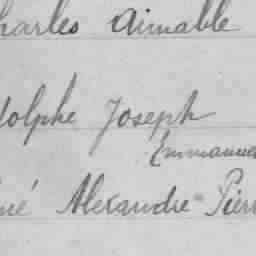 harles Aimable
dolphe Joseph
Emmanuel
né Alexandre Pierr